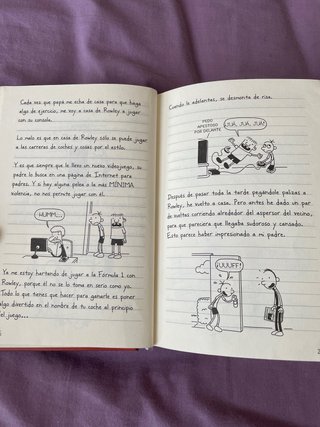 Cada vez que papá me echa de casa para que haga
algo de ejercicio, me voy a casa de Rowley a jugar
con su consola.
Lo malo es que en casa de Rowley sólo se puede jugar
a las carreras de coches y cosas por el estilo.
Y es que siempre que le llevo un nuevo videojuego, su
padre lo busca en una página de Internet para
padres. Y si hay alguna pelea o la más MÍNIMA
violencia, no nos permite jugar con él.
HUMM...
Ya me estoy hartando de jugar a la Fórmula 1 con
Rowley, porque él no se lo toma en serio como yo.
Todo lo que tienes que hacer para ganarle es poner
algo divertido en el nombre de tu coche al principio
del juego...
Cuando lo adelantas, se desmonta de risa.
PEDO
APESTOSO
POR DELANTE
¡JUA, JUA, JUA!
Después de pasar toda la tarde pegándole palizas a
Rowley, he vuelto a casa. Pero antes he dado un par
de vueltas corriendo alrededor del aspersor del vecino,
para que pareciera que llegaba sudoroso y cansado.
Esto parece haber impresionado a mi padre.
¡UUUFF!
2